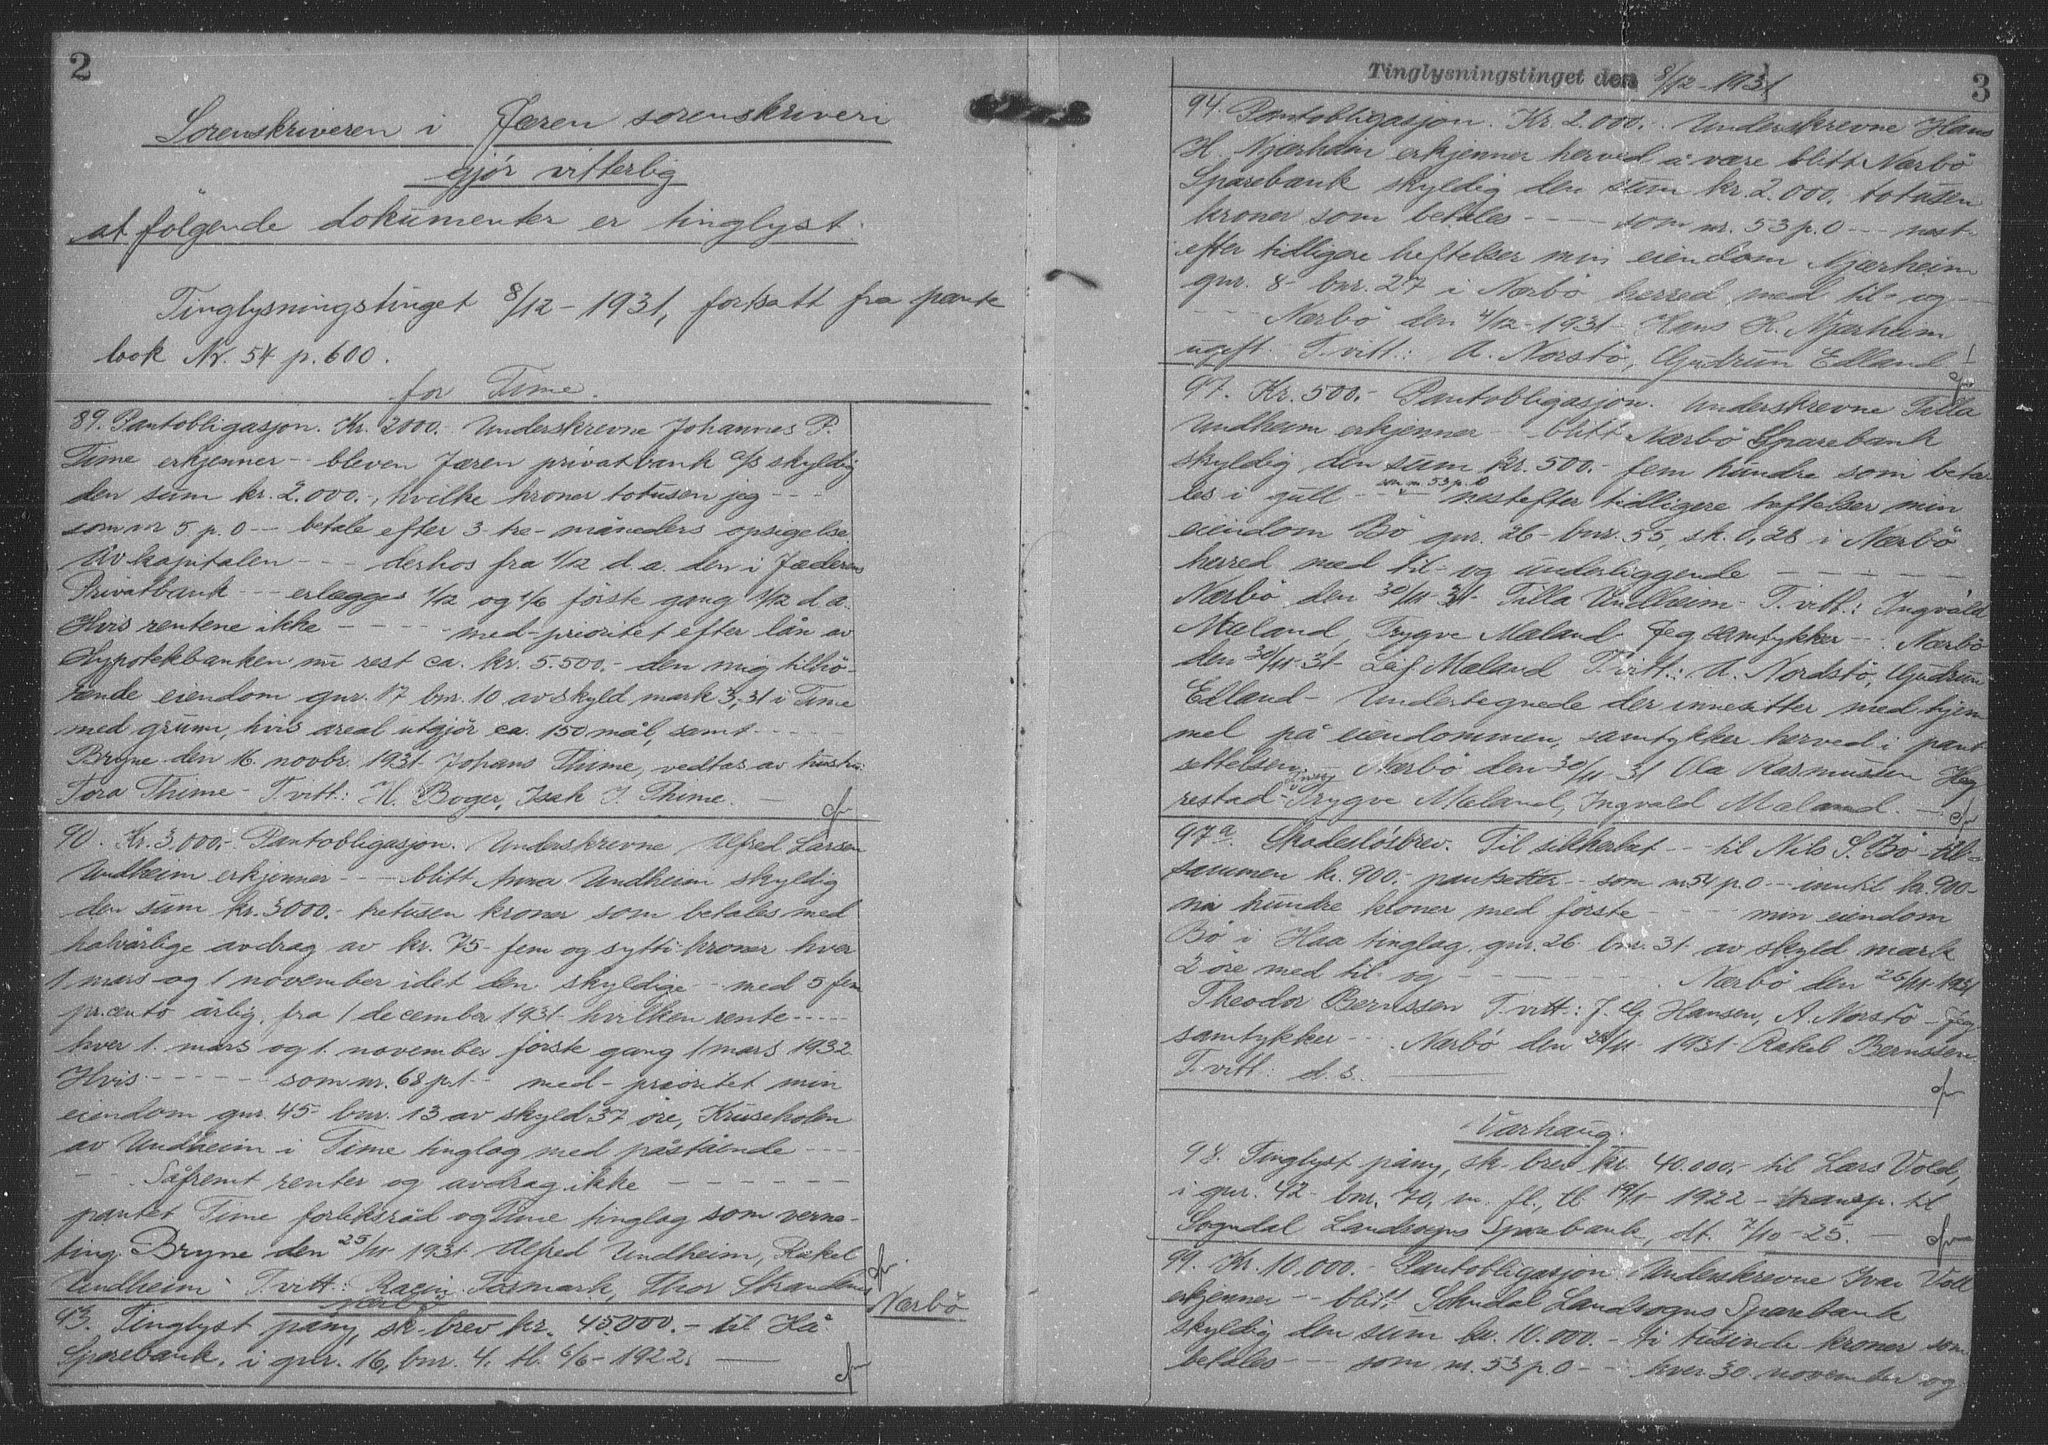 2
Sorenskriveren i Jæren sorenskriveri
gjør vitterlig
at følgende dokumenter er tinglyst:
Tinglysningstinget 8/12-1931, fortsatt fra pante
bok Nr. 54 p. 600.
for Time.
89. Pantobligasjon. Kr. 2000. Underskrevne Johannes P.
Time erkjenner -- bleven Jæren privatbank a/s skyldig
den sum kr. 2.000.-, hvilke kroner totusen jeg ---
som nr 5 p. 0 -- betale efter 3 tre- måneders opsigelse
Av kapitalen --- derhos fra 1/12 d.a. den i Jæderen
Privatbank --- erlegges 1/12 og 1/6 første gang 1/12 d.a.
Hvis rentene ikke ----- med- prioritet efter lån av
Hypotekbanken nu rest ca. kr. 5.500.- den mig tilhö-
rende eiendom gnr. 17 bnr. 10 av skyld mark 3,31 i Time
med grunn, hvis areal utgjør ca. 150 mål, samt ----
Bryne den 16. novbr. 1931 Johans Thime, vedtas av hustru
Tora Thime - T. vitt: H. Boger, Isak J. Thime. -
90. Kr. 3.000.- Pantobligasjon. Underskrevne Alfred Larsen
Undheim erkjenner --- blitt Anna Undheim skyldig
den sum kr. 3000.- tretusen kroner som betales med
halvårlige avdrag av kr. 75- fem og sytti- kroner hver
1 mars og 1 november idet den skyldige -- med 5 fem
pr. cento årlig. fra 1 december 1931 hvilken rente -----
hver 1. mars og 1. november første gang 1 mars 1932.
Hvis ------ som nr. 68 p. 1 -- med- prioritet min
eiendom gnr. 45- bnr. 13 av skyld 37 öre, Kruseholen
av Undheim i Time tinglag med påstående ----
-- Såfremt renter og avdrag ikke ------
pantet Time forliksråd og Time tinglag som verne-
ting. Bryne den 25/11 1931 Alfred Undheim, Rakel
Undheim - T. vitt: Tosmark, Thor
Nærbö
Nærbö
93. Tinglyst påny, sk-brev kr. 45.000.- til Hå
Sparebank, i gnr. 16, bnr. 4. tl. 6/6-1922. ---
Tinglysningstinget den 8/12-1931
3
94. Pantobligasjon. Kr. 2.000.- Underskrevne Hans
H. Njærheim erkjenner herved å være blitt Nærbö
Sparebank skyldig den sum kr. 2.000.- totusen
kroner som betales ---- som nr. 53 p. 0 --- nest-
efter tidligere heftelser min eiendom Njærheim
gnr. 8- bnr. 27 i Nærbö herred med til- og -
--- Nærbö den 4/12-1931- Hans H. Njærheim
ugift. T. vitt.: A. Norstö, Gudrun Edland -
97. Kr. 500.- Pantobligasjon. Underskrevne Tilla
Undheim erkjenner --- blitt Nærbö Sparebank
skyldig den sum kr. 500.- fem hundre som beta-
les i gull --- som nr. 53 p. 0 nestefter tidligere heftelser min
eiendom Bö gnr. 26- bnr. 55, sk. 0,28 i Nærbö
herred med til- og underliggende ------
Nærbö den 30/11-31- Tilla Undheim- T. vitt.: Ingvald
Mæland, Trygve Mæland. Jeg samtykker --- Nærbö
den 30/11-31- Leif Mæland T. vitt.: A. Nordstö, Gudrun
Edland - Undertegnede der innesitter med hjem
mel på eiendommen, samtykker herved i pant
settelsen. Nærbö den 30/11-31 Ola Rasmussen Hog
restad- Trygve Mæland, Ingvald Mæland. -
97a. Skadeslösbrev. Til sikkerhet --- til Nils S. Bö til-
sammen kr. 900.- pantsetter -- som nr 54 p. 0 --- inntil kr. 900-
ni hundre kroner med første ---- min eiendom
Bö i Haa tinglag, gnr. 26 bnr. 31 av skyld mark
2 öre med til- og ------ Nærbö den 26/11-1931
Theodor Berntsen T. vitt.: J. G. Hansen, A. Norstö - Jeg
samtykker --- Nærbö den 28/11-1931- Rakel Berntsen
T. vitt: d. s. ----
Varhaug.
98. Tinglyst påny, sk-brev kr. 40.000.- til Lars Vold,
i gnr. 42- bnr. 70, m. fl., tl. 19/11-1922 - transp. til
Sogndal Landsogns Sparebank, dt. 7/10-25. -
99. Kr. 10.000.- Pantobligasjon. Underskrevne Ivar Voll
erkjenner --- blitt Sokndal Landsogns Sparebank
skyldig den sum kr. 10.000.- ti tusinde kroner som
betales --- som nr. 53 p. 0 --- hver 30. november og